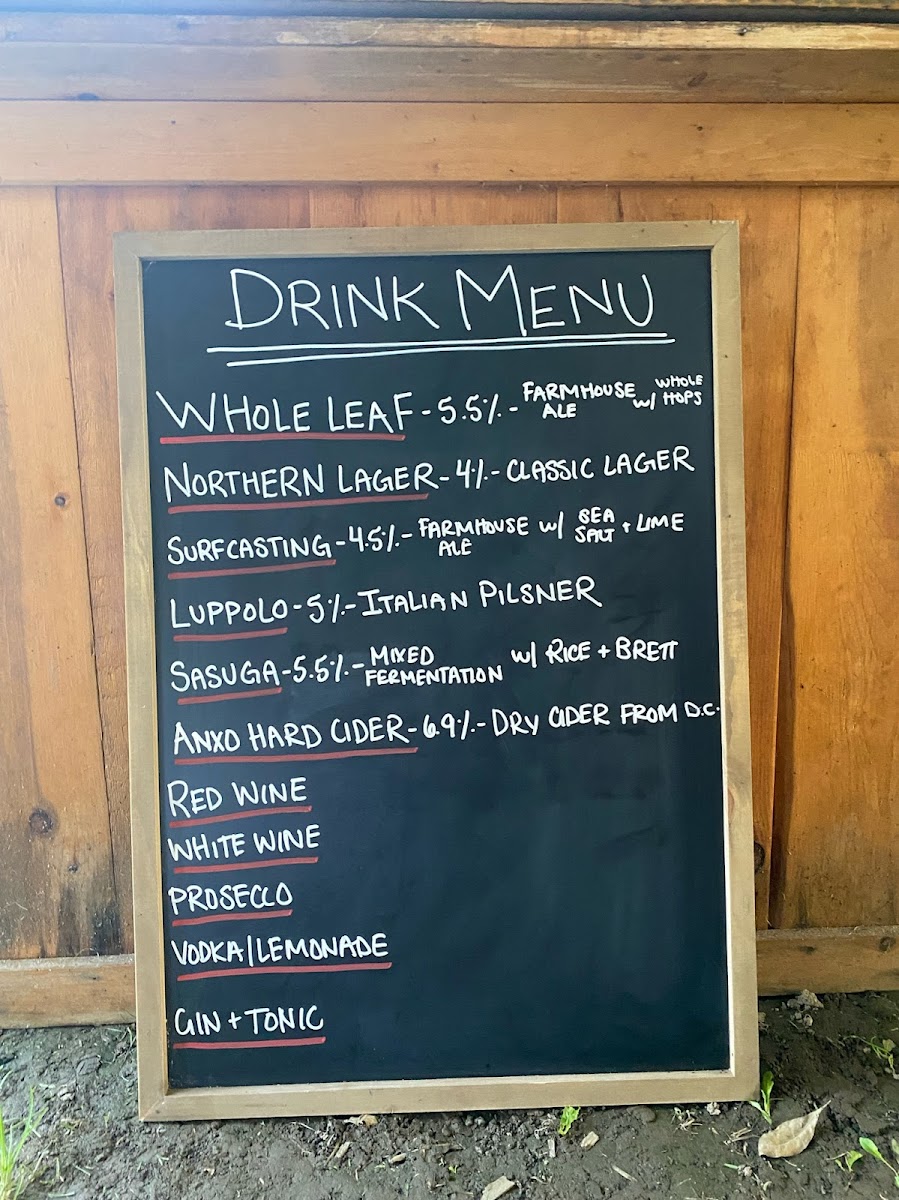 DRINK MENU
WHOLE LEAF - 5.5% - FARMHOUSE ALE w/ WHOLE HOPS
NORTHERN LAGER - 4% - CLASSIC LAGER
SURFCASTING - 4.5% - FARMHOUSE ALE w/ SEA SALT + LIME
LUPPOLO - 5% - ITALIAN PILSNER
SASUGA - 5.5% - MIXED FERMENTATION w/ RICE + BRETT
ANXO HARD CIDER - 6.9% - DRY CIDER FROM D.C.
RED WINE
WHITE WINE
PROSECCO
VODKA/LEMONADE
GIN + TONIC